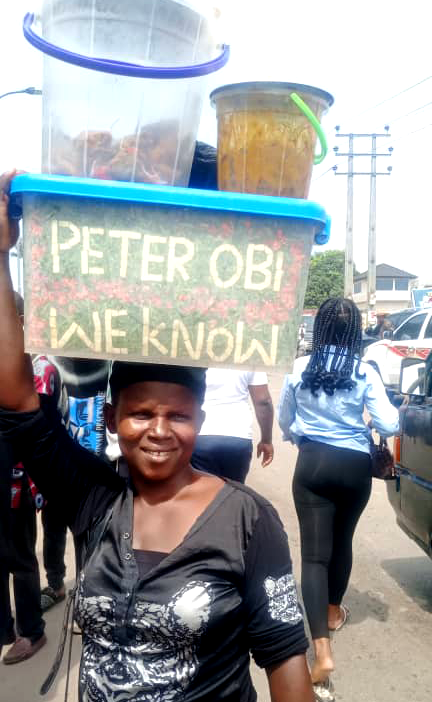 PETER OBI
WE KNOW